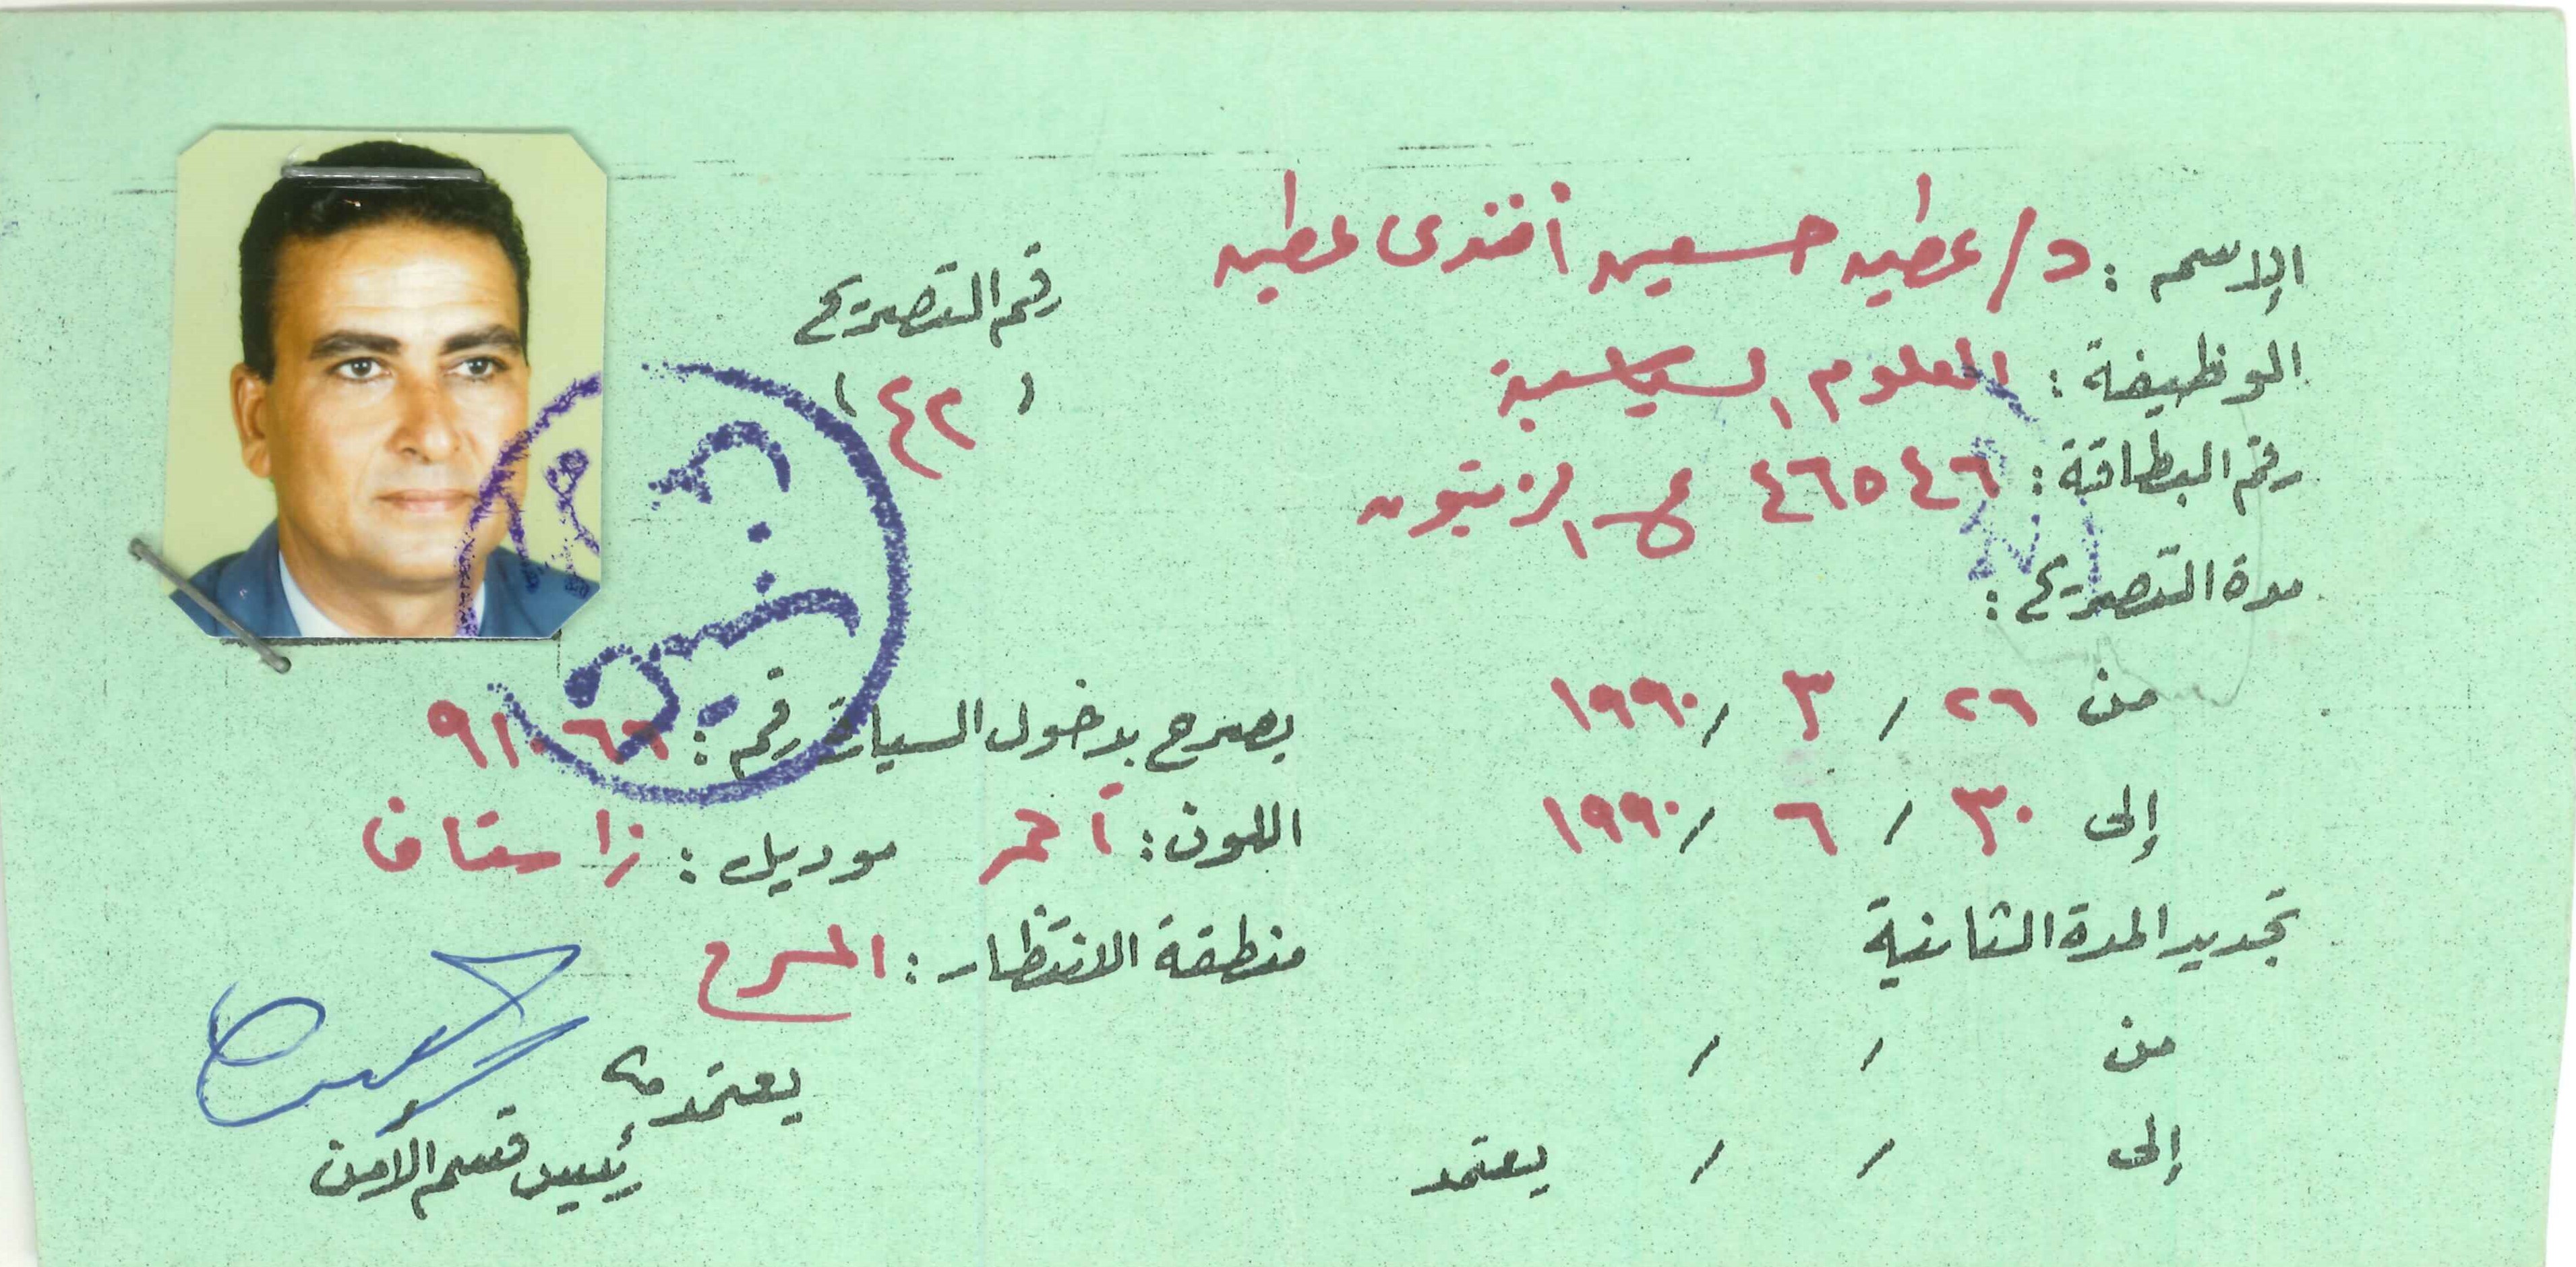 الإسم : د/ عطيه حسين أفندى عطيه
رقم التصريح
( ٤٢ )
الوظيفة : العلوم السياسية
رقم البطاقة : ٤٦٥٤٦ الزيتون
مدة التصريح :
من ٢٦ / ٣ / ١٩٩٠
إلى ٣٠ / ٦ / ١٩٩٠
تجديد المدة الثانية
من / /
إلى / / يعتمد
يصرح بدخول السيارة رقم :
اللون : أحمر موديل : زاستافا
منطقة الانتظار : المسرح
يعتمد
رئيس قسم الأمن